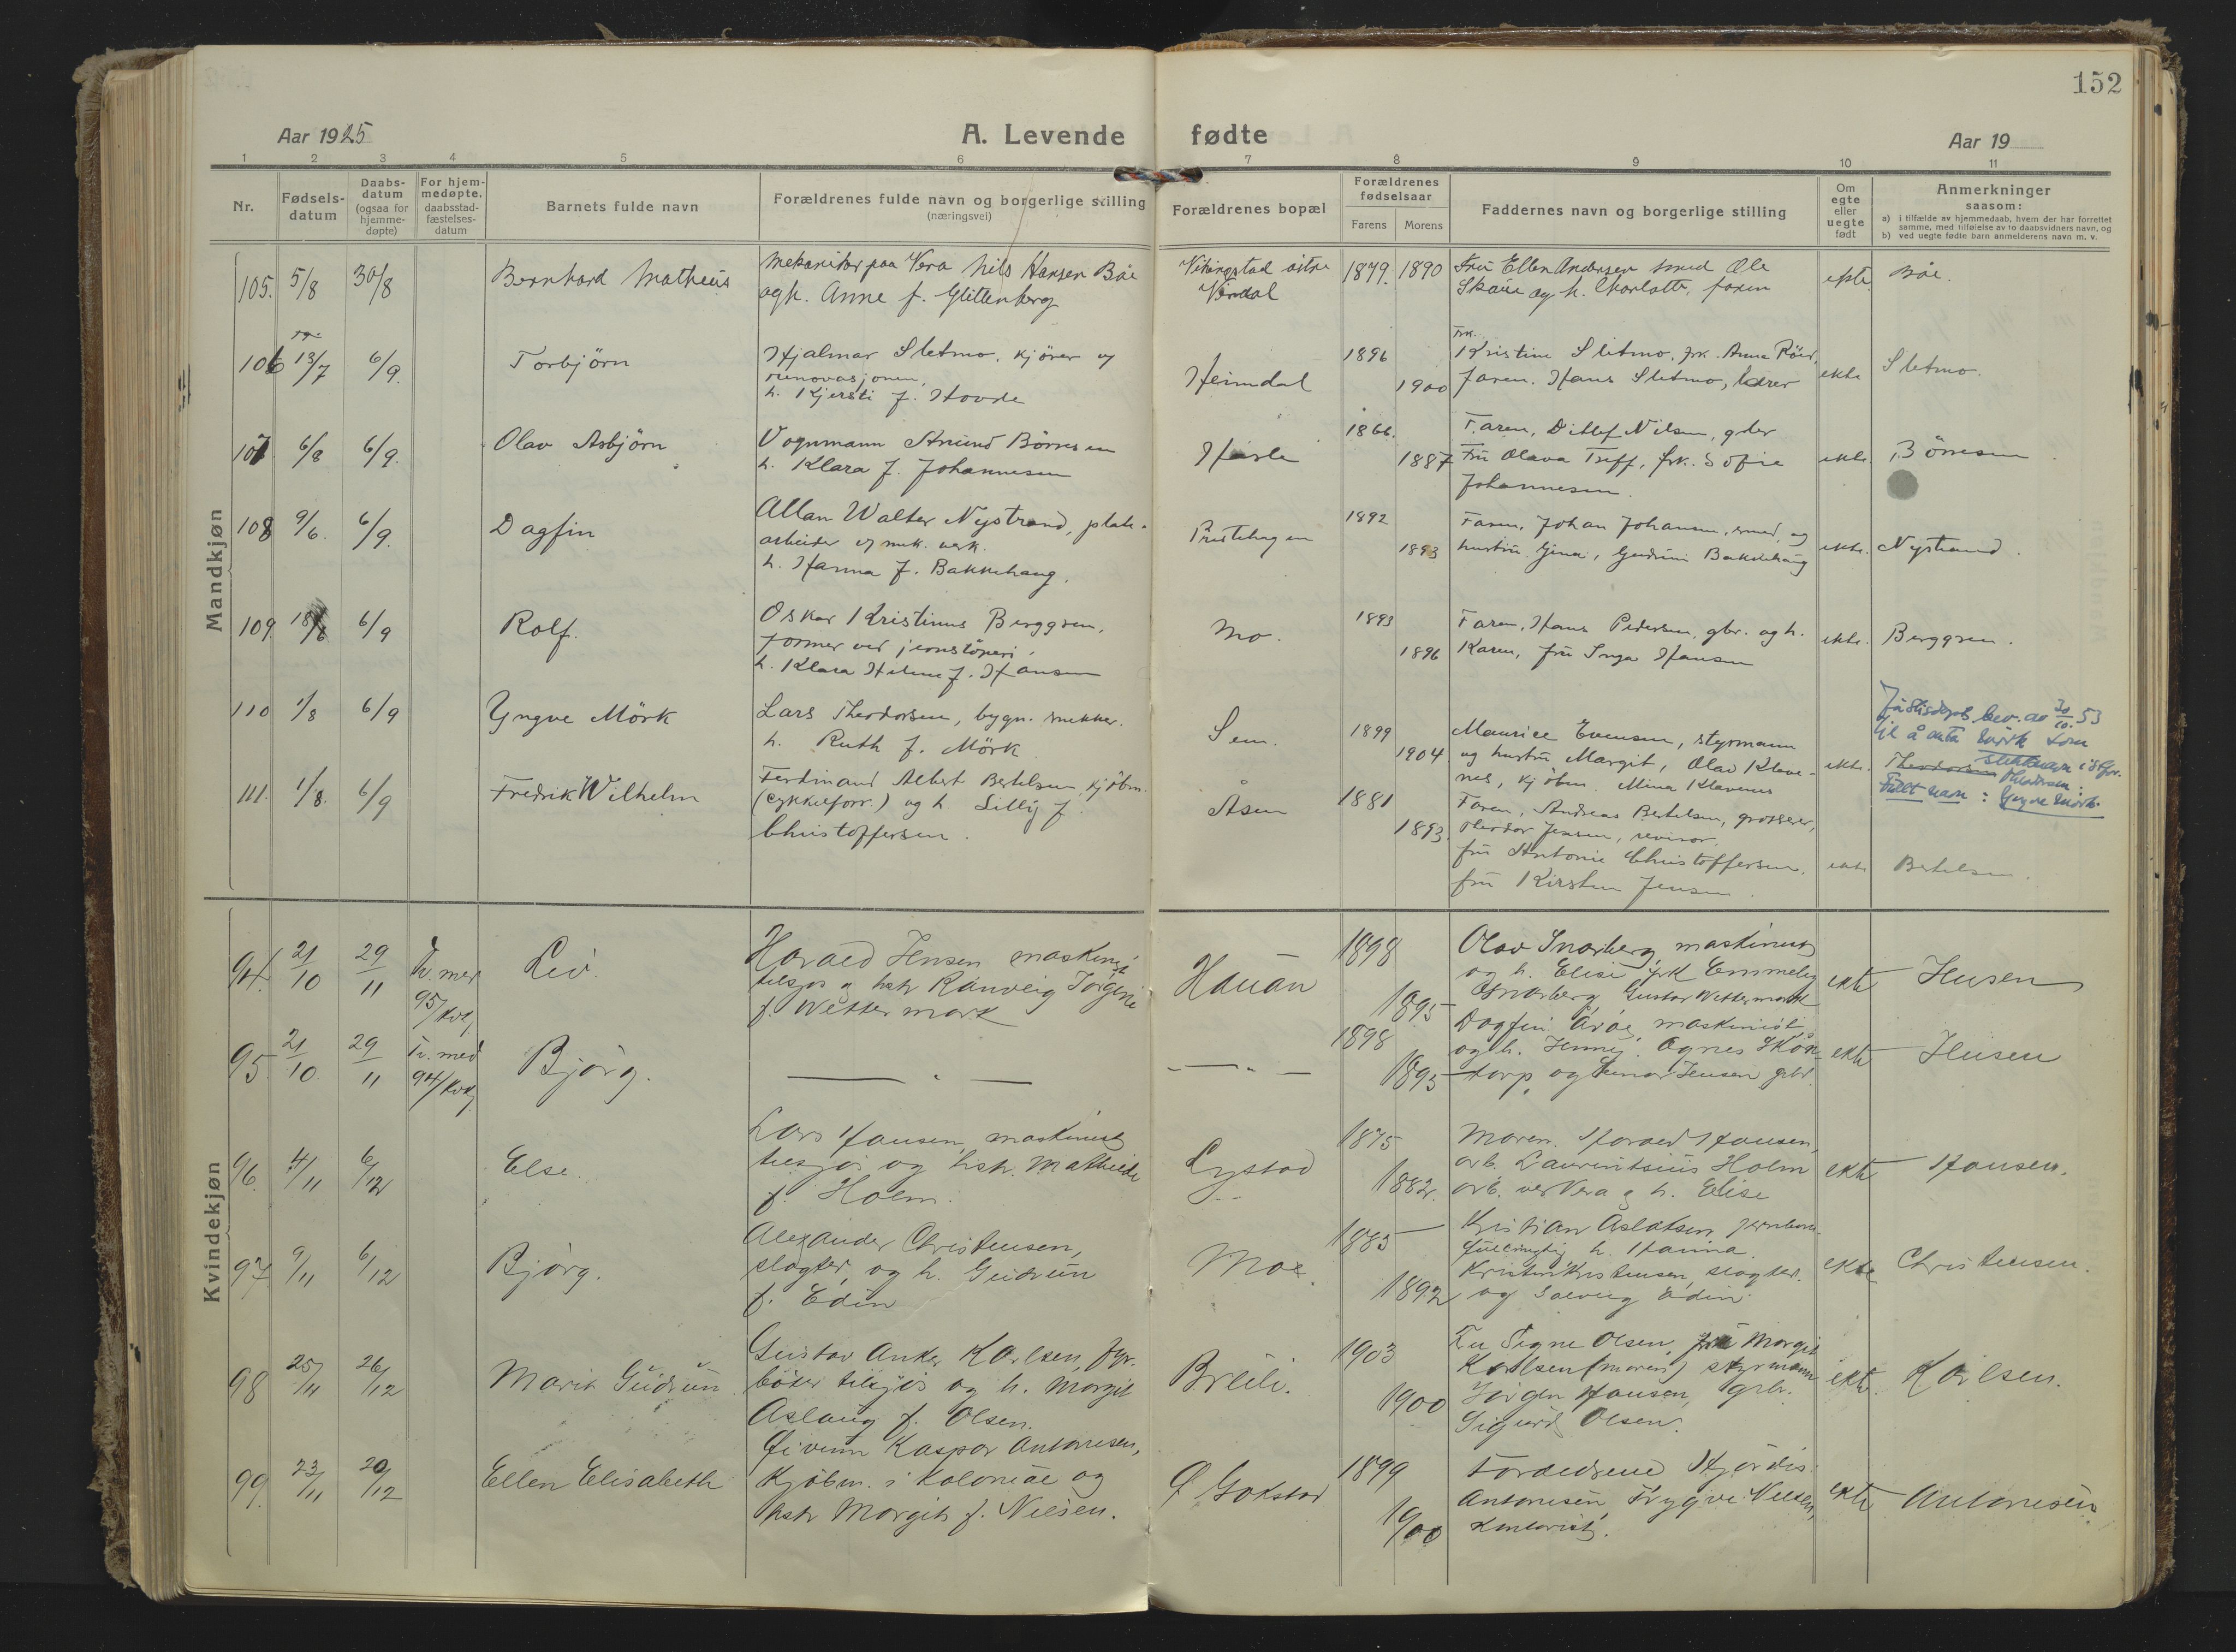 152
Aar 1925
A. Levende fødte
Aar 19
1 2 3 4 5 6 7 8 9 10 11
Nr.
Fødsels-
datum
Daabs-
datum
(ogsaa for
hjemme-
døpte)
For hjem-
medøpte,
daabsstad-
fæstelses-
datum
Barnets fulde navn
Forældrenes fulde navn og borgerlige stilling
(næringsvei)
Forældrenes bopæl
Forældrenes
fødselsaar
Farens Morens
Faddernes navn og borgerlige stilling
Om
egte
eller
uegte
født
Anmerkninger
saasom:
a) i tilfælde av hjemmedaab, hvem der har forrettet
samme, med tilføielse av to daabsvidners navn, og
b) ved uegte fødte barn anmelderens navn m. v.
Mandkjøn
105. 5/8 30/8
Bernhard Matheus
Mekaniker paa Vera Nils Hansen Båe
og h. Anne f. Glittenberg
Vikingstad østre
1879. 1890
Fru Ellen Andersen smed Ole
Skaue og h. Charlotte, faren
ekte.
Båe.
106 13/7 6/9.
Torbjörn
Hjalmar Sletmo, kjörer ved
renovasjonen,
h. Kjersti f. Hovde
Heimdal
1896
1900
Frk.
Kristine Sletmo, frk. Anna Röed,
faren. Hans Sletmo, lærer
ekte
Sletmo.
107 6/8 6/9.
Olav Asbjörn
Vognmann Amund Börresen
h. Klara f. Johannesen
Hasle
1866.
1887
Faren, Ditlef Nilsen, gbr
Fru Olava Treff, frk. Sofie
Johannesen.
ekte.
Börresen
108 9/6. 6/9.
Dagfin
Allan Walter Nystrand, plate-
arbeider v/ mek. verk.
h. Hanna f. Bakkehaug.
Pristehagen
1892
1893
Faren, Johan Johansen, smed, og
hustru Gina, Gudrun Bakkehaug
ekte.
Nystrand.
109 18/6 6/9
Rolf.
Oskar Kristinus Berggren,
former ved jernstöperi.
h. Klara Helene f. Hansen
Mo.
1893
1896
Faren, Hans Pedersen, gbr. og h.
Karen, fru Inga Hansen
ekte.
Berggren.
110 1/8 6/9
Yngve Mörk
Lars Theodorsen, bygn. snekker.
h. Ruth f. Mörk
Sem.
1899
1904
Maurice Evensen, styrmann
og hustru, Margit, Olav Klave-
nes, kjöbm. Mina Klavenes
ekte.
Justisdeps bev. av 30/10. 53
til å anta Mörk som
slektsnavn istf.
Theodorsen Theodorsen.
Fullt navn: Yngve Mörk.
111. 1/8. 6/9
Fredrik Wilhelm
Ferdinand Albert Bertelsen, kjöbm.
(cykkelforr.) og h. Lilly f.
Christoffersen.
Åsen
1881
1893.
Faren, Andreas Bertelsen, grosserer,
Theodor Jensen, revisor,
fru Antonie Christoffersen.
fru Kirsten Jensen.
ekte
Bertelsen.
Kvindekjøn
94. 21/10 29/11
Tv. med
95/kvk.
Liv.
Harald Jensen maskinist
tilsjøs og hstr Ranveig Jørgine
f. Wettermark
Hauan
1898
1895
Olav Snarberg, maskinist
og h. Elise frk Emmely
Snarberg Gustav Wettermark
ekte
Jensen
95. 21/10 29/11
Tv. med
94/kvk.
Bjørg.
— " —
— " —
1898
1895
Dagfin Årøe, maskinist,
og h. Jenny. Agnes Skon-
torp, og Einar Jensen gbr.
ekte
Jensen
96. 4/11 6/12
Else.
Lars Hansen, maskinist
tilsjøs og hstr. Mathilde
f. Holm.
Lystad
1875
1882.
Moren. Harald Hansen,
arb. Laurentsius Holm
arb. ved Vera og h. Elise
ekte
Hansen.
97. 9/11 6/12
Bjørg.
Alexander Christensen,
slagter, og h. Gudrun
f. Edin
Moe.
1885
1892
Kristian Aslaksen, jernbane
fullmægtig h. Hanna.
Kristen Kristensen, slagter.
og Solveig Edin.
ekte
Christensen.
98 25/11 26/12
Marit Gudrun
Gustav Anker Karlsen, fyr-
bøter tilsjøs og h. Margit
Aslaug f. Olsen.
Breili.
1903
1900
Fru Signe Olsen, fru Margit
Karlsen (moren) styrmann
Jørgen Hansen, gbr.
Sigurd Olsen.
ekte.
Karlsen.
99. 23/11 20/12
Ellen Elisabeth
Eivinn Kaspar Antonisen,
kjøbm. i kolonial og
hstr Margit f. Nilsen.
Ø Gokstad
1899
1900
Forældrene Hjørdis
Antonisen, Trygve Nilsen,
kontorist.
ekte
Antonisen.